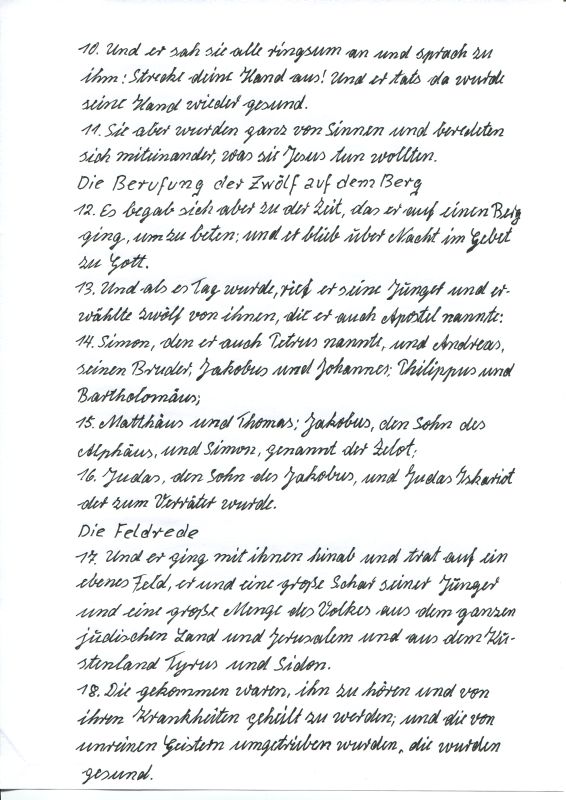 10. Und er sah sie alle ringsum an und sprach zu
ihm: Strecke deine Hand aus! Und er tats da wurde
seine Hand wieder gesund.
11. Sie aber wurden ganz von Sinnen und beredeten
sich miteinander, was sie Jesus tun wollten.
Die Berufung der Zwölf auf dem Berg
12. Es begab sich aber zu der Zeit, das er auf einen Berg
ging, um zu beten; und er blieb über Nacht im Gebet
zu Gott.
13. Und als es Tag wurde, rief er seine Jünger und er-
wählte zwölf von ihnen, die er auch Apostel nannte:
14. Simon, den er auch Petrus nannte, und Andreas,
seinen Bruder, Jakobus und Johannes; Philippus und
Bartholomäus;
15. Matthäus und Thomas; Jakobus, den Sohn des
Alphäus, und Simon, genannt der Zelot;
16. Judas, den Sohn des Jakobus, und Judas Iskariot
der zum Verräter wurde.
Die Feldrede
17. Und er ging mit ihnen hinab und trat auf ein
ebenes Feld, er und eine große Schar seiner Jünger
und eine große Menge des Volkes aus dem ganzen
jüdischen Land und Jerusalem und aus dem Kü-
stenland Tyrus und Sidon.
18. Die gekommen waren, ihn zu hören und von
ihren Krankheiten geheilt zu werden; und die von
unreinen Geistern umgetrieben wurden, die wurden
gesund.